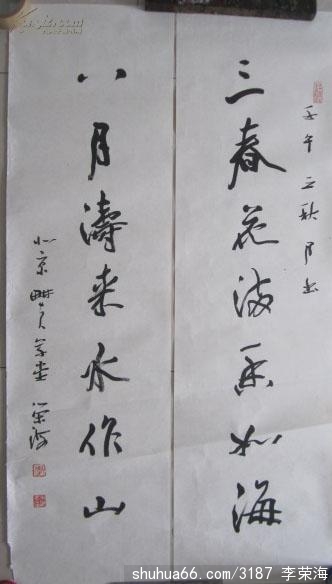 三春花满香如海
八月涛来水作山
壬午之秋月书
北京
荣海
shuhua66.com/3187 李荣海